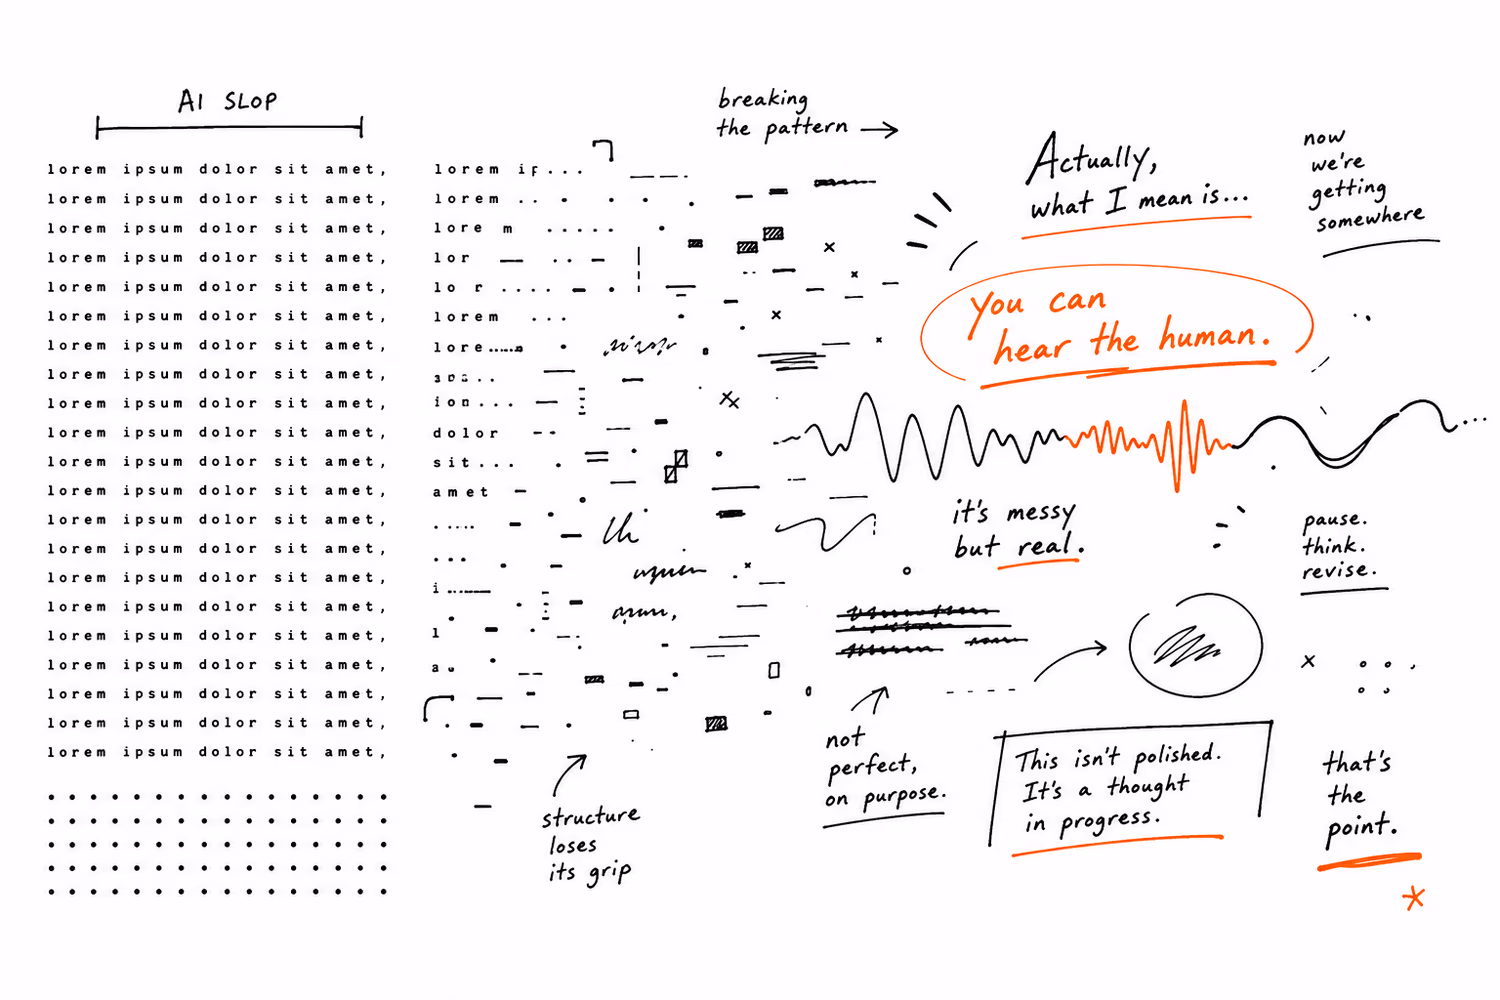 AI SLOP
lorem ipsum dolor sit amet,
lorem ipsum dolor sit amet,
lorem ipsum dolor sit amet,
lorem ipsum dolor sit amet,
lorem ipsum dolor sit amet,
lorem ipsum dolor sit amet,
lorem ipsum dolor sit amet,
lorem ipsum dolor sit amet,
lorem ipsum dolor sit amet,
lorem ipsum dolor sit amet,
lorem ipsum dolor sit amet,
lorem ipsum dolor sit amet,
lorem ipsum dolor sit amet,
lorem ipsum dolor sit amet,
lorem ipsum dolor sit amet,
lorem ipsum dolor sit amet,
lorem ipsum dolor sit amet,
lorem ipsum dolor sit amet,
lorem ipsum dolor sit amet,
lorem ipsum dolor sit amet,
lorem ipsum dolor sit amet,
lorem ip...
lorem ..
lore m .....
lor
lo r ....
lorem ...
lore......
ion...
dolor
sit...
amet
.....
...
i
l
a
structure
loses
its grip
breaking
the pattern →
Actually,
what I mean is...
now
we're
getting
somewhere
you can
hear the human.
it's messy
but real.
pause.
think.
revise.
not
perfect,
on purpose.
This isn't polished.
It's a thought
in progress.
that's
the
point.
*